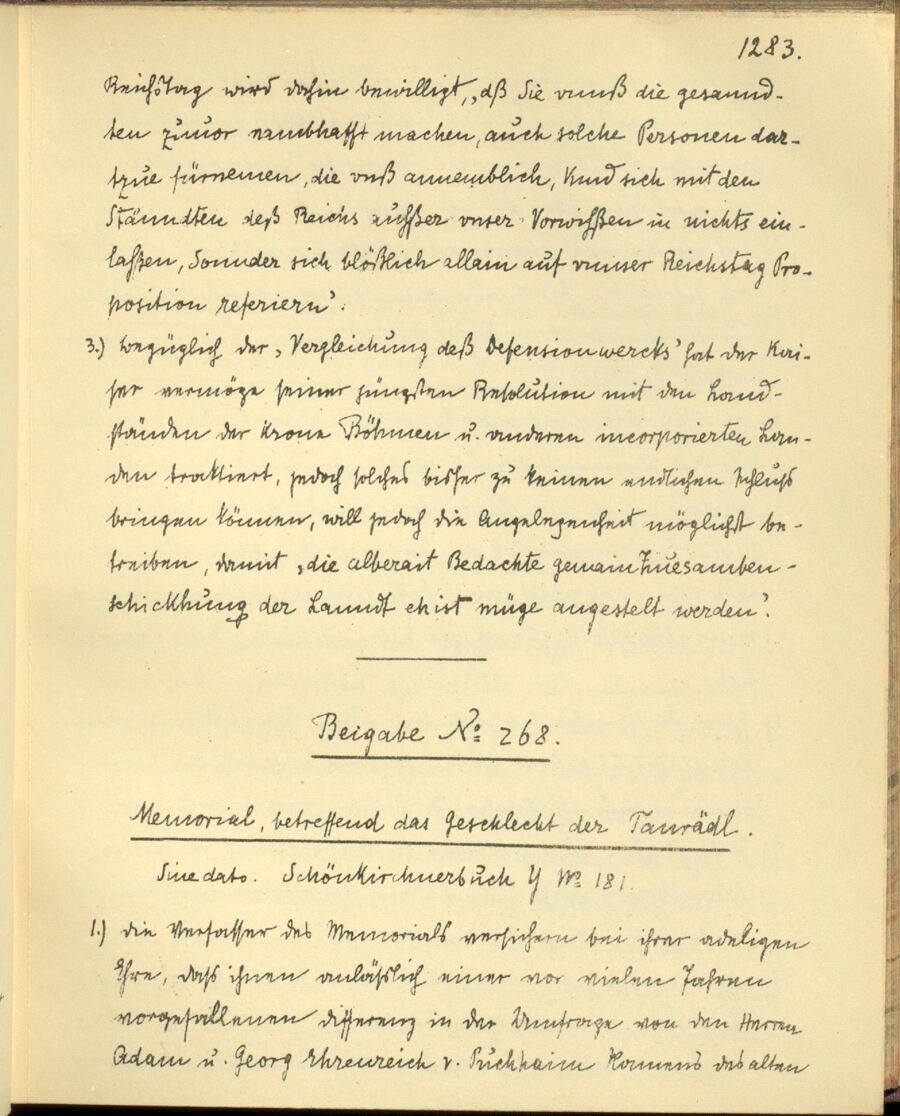 1283.
Reichstag wird dahin bewilligt, „dß Sie vnnß die gesannd-
ten zuuor nambhafft machen, auch solche Personen dar-
tzue fürnemen, die vnß annemblich, Vnnd sich mit den
Stänndten deß Reichs ausser vnser Vorwissen in nichts ein-
lassen, Sonnder sich blößlich allain auf vnnser Reichstag Pro-
position referiern'.
3.) bezüglich der ‚Vergleichung deß Defensionwercks' hat der Kai-
ser vermöge seiner jüngsten Resolution mit den Land-
ständen der Krone Böhmen u. anderen incorporierten Lan-
den traktiert, jedoch solches bisher zu keinen endlichen Schluss
bringen können, will jedoch die Angelegenheit möglichst be-
treiben, damit ‚die alberait Bedachte gemain Zuesamben-
schickhung der Lanndt ehist müge angestelt werden'.
Beigabe No 268.
Memorial, betreffend das Geschlecht der Tanrädl.
Sine dato. Schönkirchnerbuch Y No 181.
1.) die Verfasser des Memorials versichern bei ihrer adeligen
Ehre, dass ihnen anlässlich einer vor vielen Jahren
vorgefallenen differenz in der Umfrage von den Herren
Adam u. Georg Ehrenreich v. Puchhaim Namens des alten